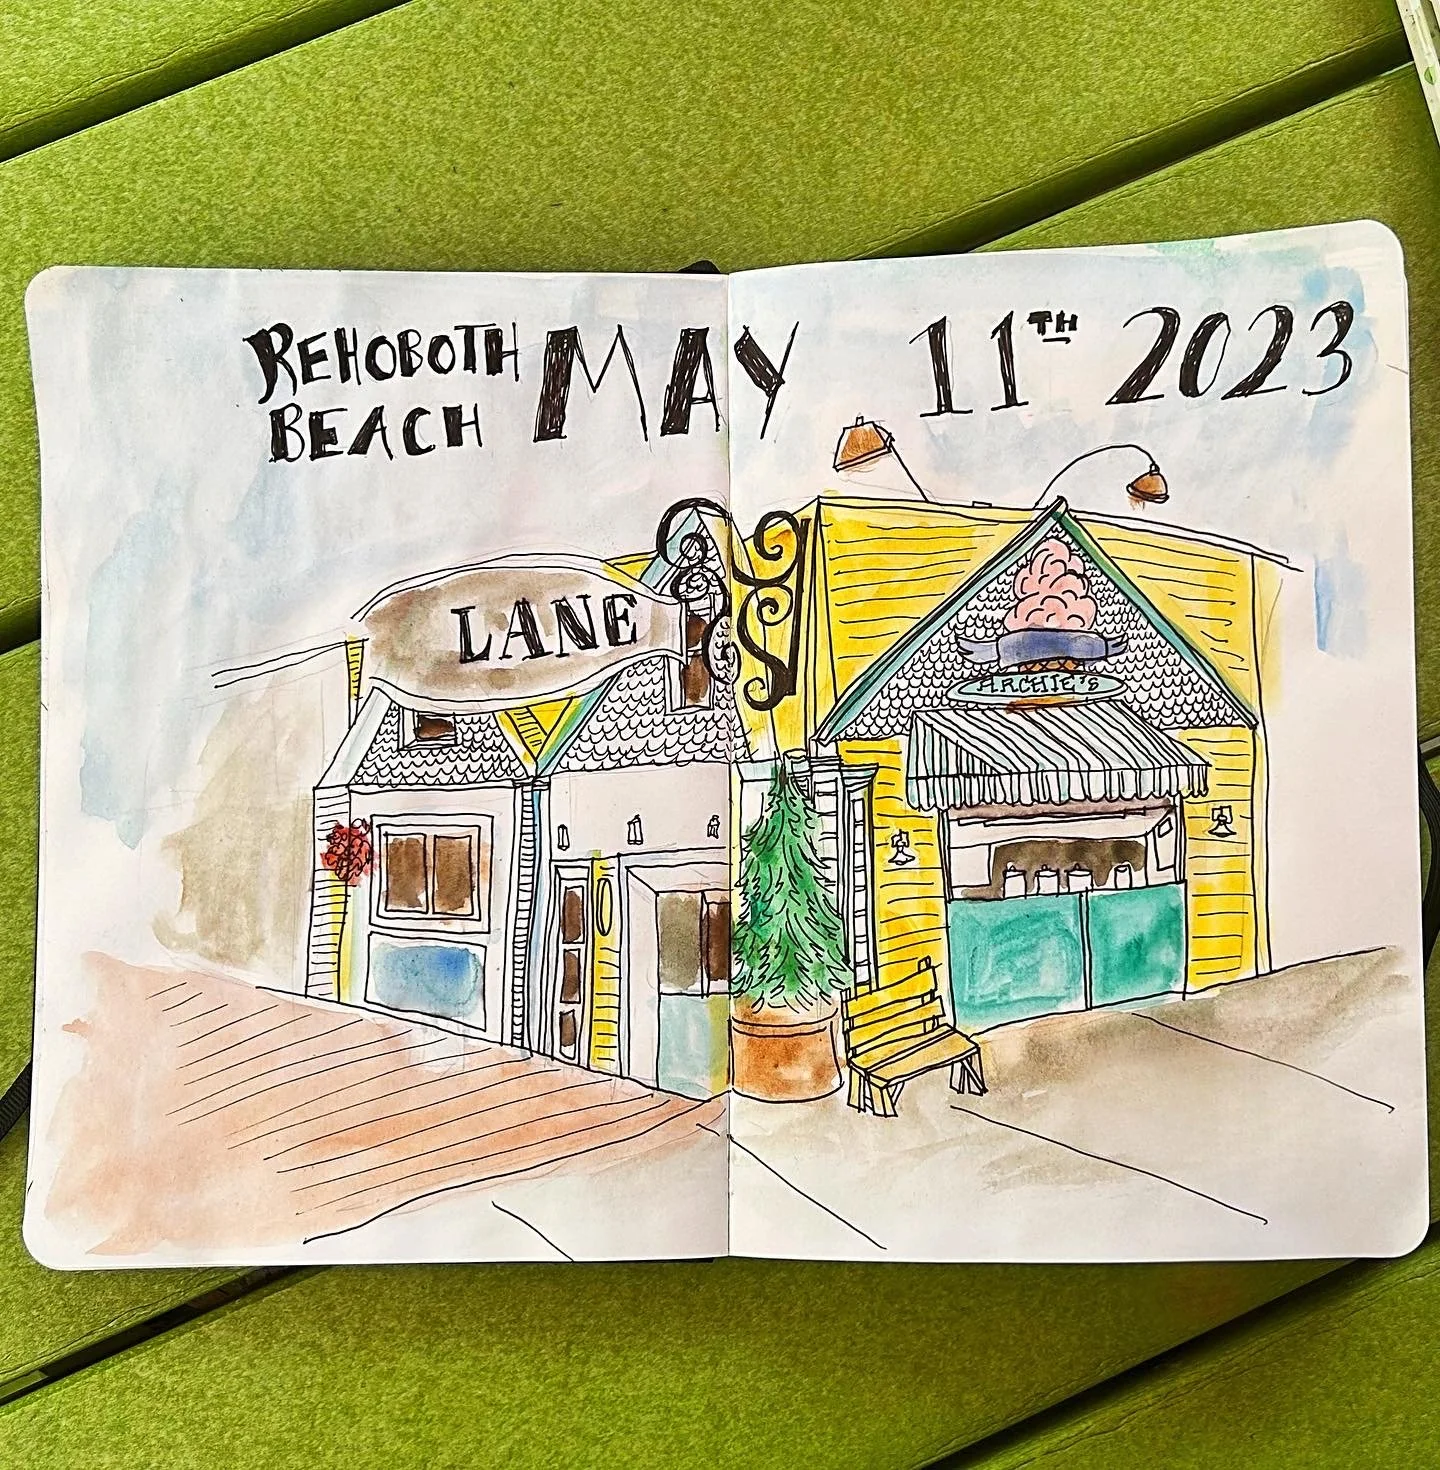 REHOBOTH
BEACH
MAY 11TH 2023
LANE
ARCHIE'S